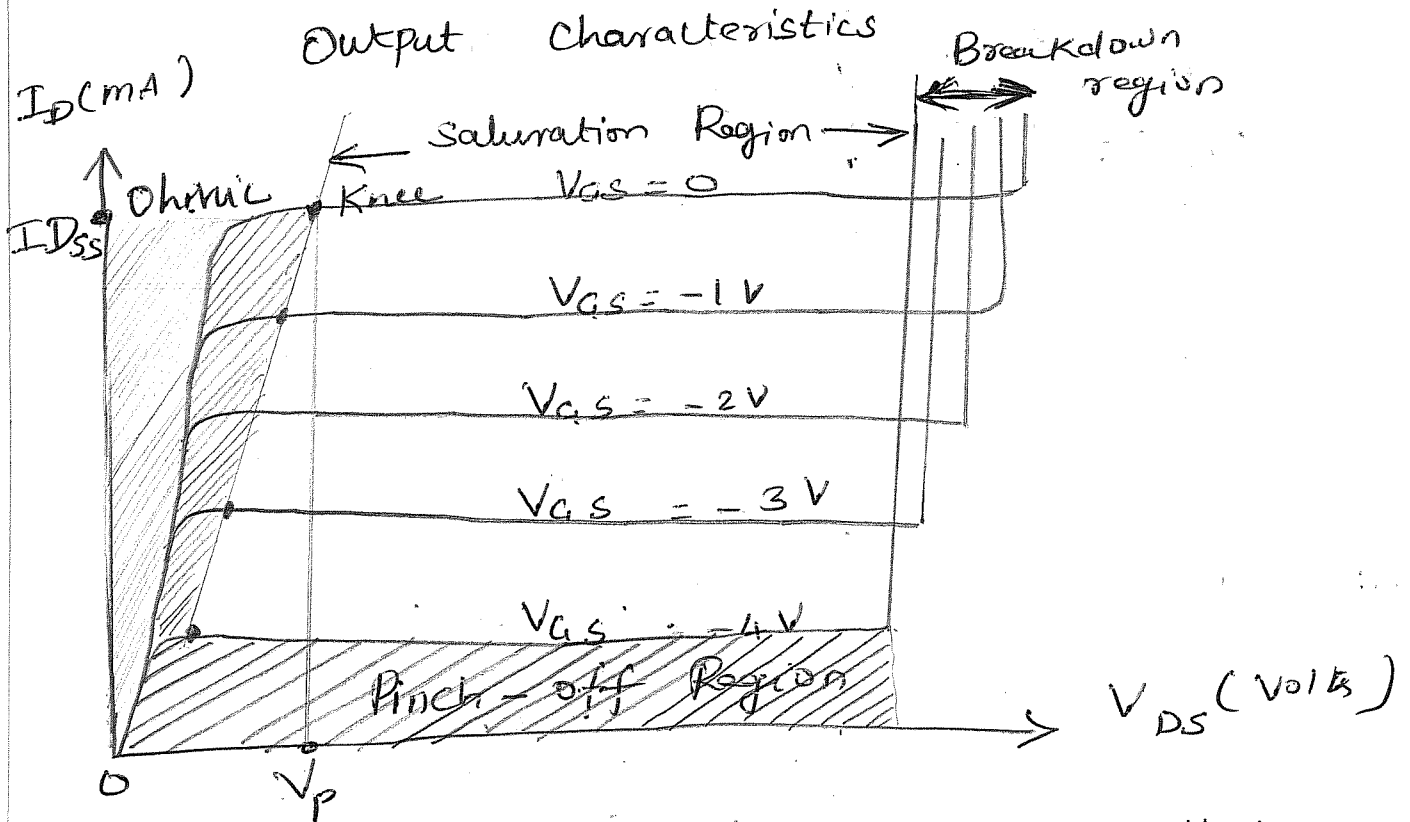 Output Characteristics
Breakdown
region
ID (mA)
Saturation Region
Ohmic
Knee
VGS = 0
IDSS
VGS = -1 V
VGS = -2 V
VGS = -3 V
VGS = -4 V
Pinch-off Region
VDS (Volts)
0
Vp